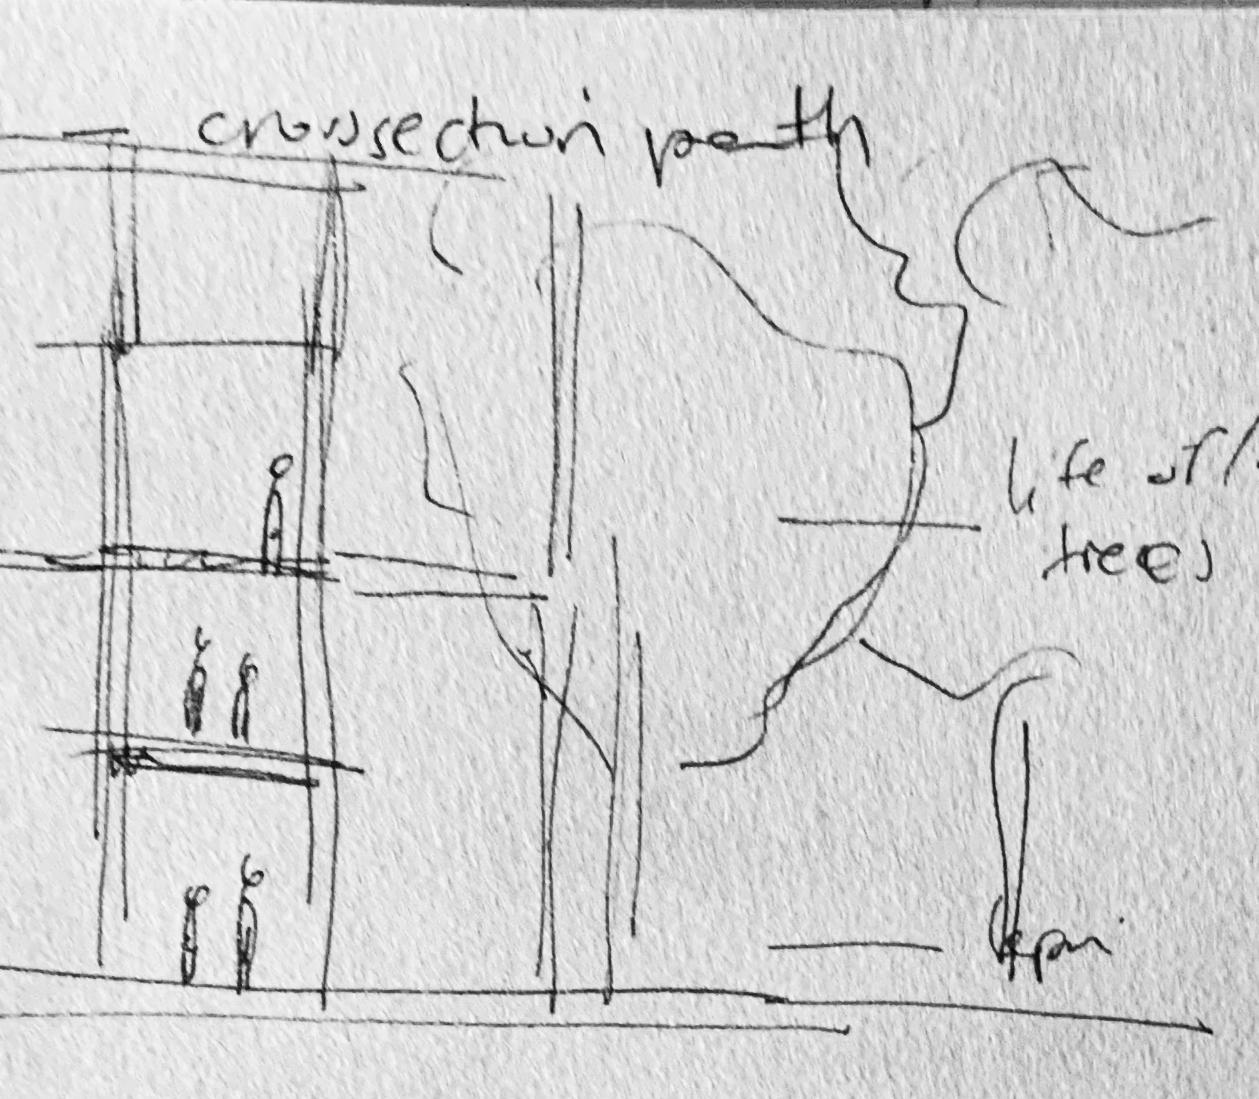 crossection path
life of
trees